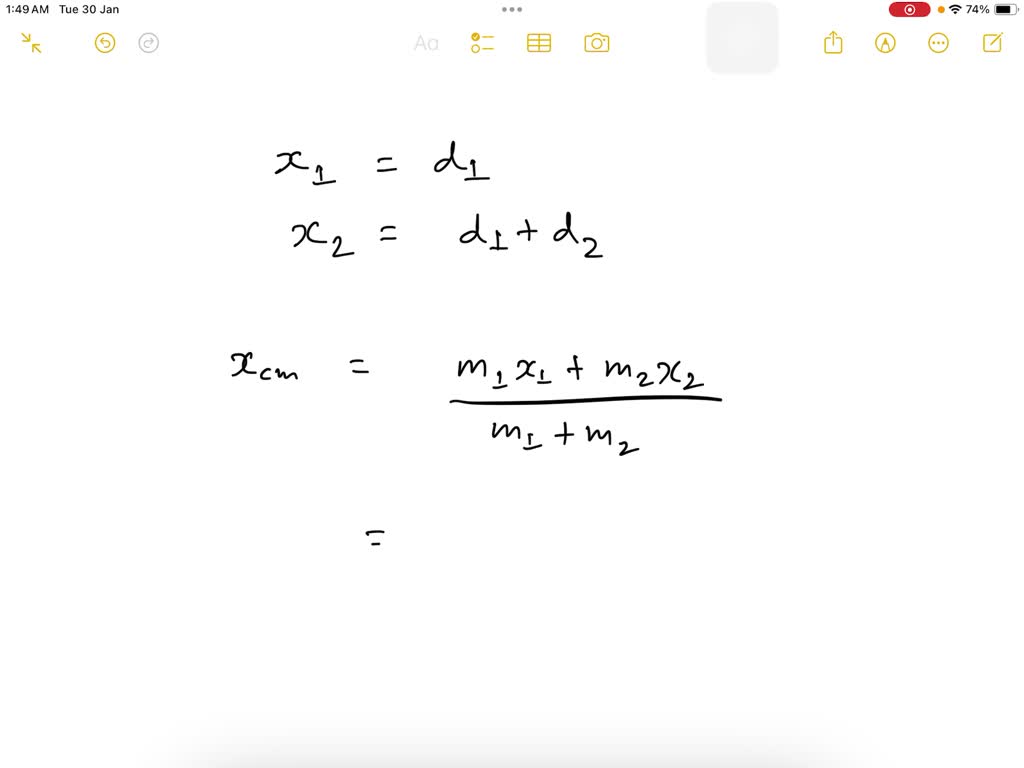 1:49 AM Tue 30 Jan
74%
Aa
x₁ = d₁
x₂ = d₁ + d₂
x_cm = (m₁x₁ + m₂x₂) / (m₁ + m₂)
=